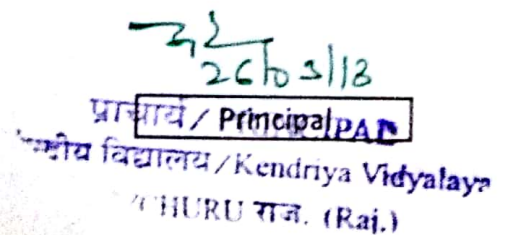 26/03/13
प्राचार्य / Principal
विद्यालय / Kendriya Vidyalaya
CHURU राज. (Raj.)